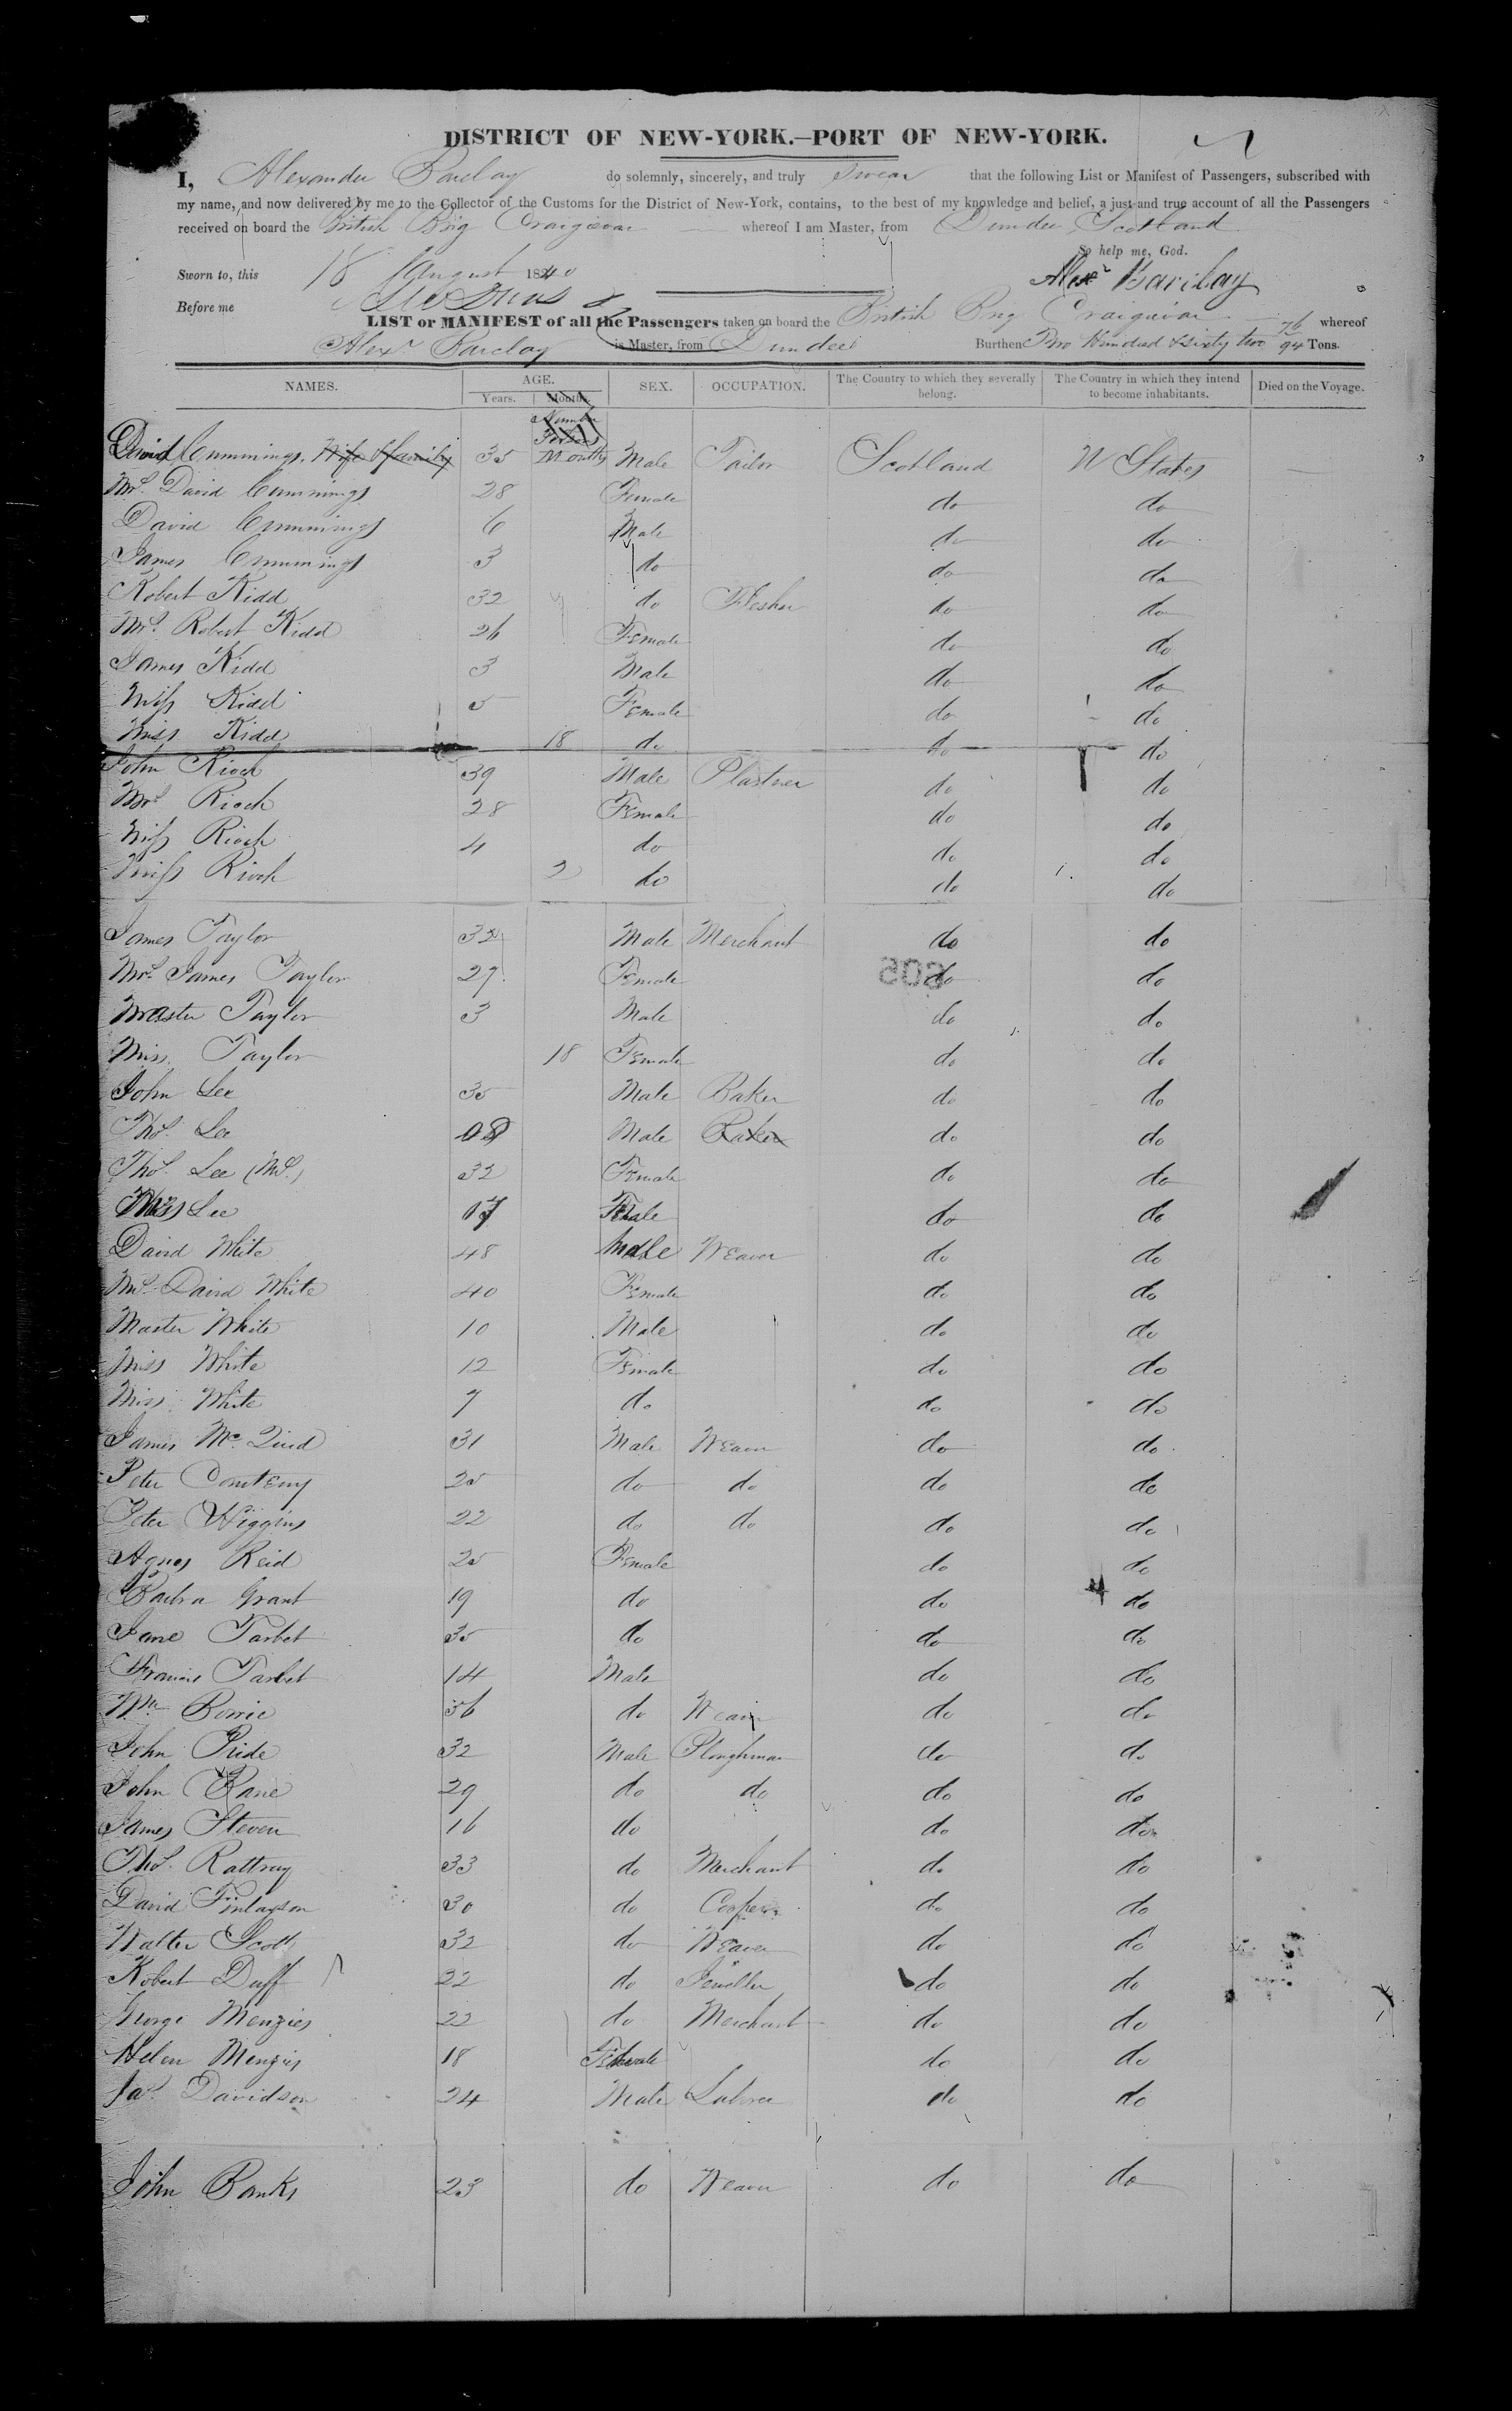 DISTRICT OF NEW-YORK.—PORT OF NEW-YORK.
I, Alexander Barclay do solemnly, sincerely, and truly Swear that the following List or Manifest of Passengers, subscribed with
my name, and now delivered by me to the Collector of the Customs for the District of New-York, contains, to the best of my knowledge and belief, a just and true account of all the Passengers
received on board the British Brig Craigievar whereof I am Master, from Dundee Scotland
So help me, God.
Sworn to, this 18 August 1840
Alexr Barclay
Before me
LIST or MANIFEST of all the Passengers taken on board the British Brig Craigievar whereof
Alexr Barclay is Master, from Dundee Burthen Two Hundred & Sixty two 76/94 Tons.
NAMES. AGE. SEX. OCCUPATION. The Country to which they severally belong. The Country in which they intend to become inhabitants. Died on the Voyage.
Years. Months.
David Cummings. Wife & family 35 Months Male Tailor Scotland U States
Mrs David Cummings 28 Female do do
David Cummings 6 Male do do
James Cummings 3 do do do
Robert Kidd 32 do Flesher do do
Mrs. Robert Kidd 26 Female do do
James Kidd 3 Male do do
Miss Kidd 5 Female do do
Miss Kidd 18 do do do
John Rioch 39 Male Plastner do do
Mrs Rioch 28 Female do do
Miss Rioch 4 do do do
Miss Rioch 2 do do do
James Taylor 32 Male Merchant do do
Mrs. James Taylor 27 Female do do
Master Taylor 3 Male do do
Miss Taylor 18 Female do do
John Lee 35 Male Baker do do
Thos. Lee 08 Male Baker do do
Thos. Lee (Mrs.) 32 Female do do
Miss Lee 07 Female do do
David White 48 Male Weaver do do
Mrs. David White 40 Female do do
Master White 10 Male do do
Miss White 12 Female do do
Miss White 7 do do do
James Mc. Quid 31 Male Weaver do do
Peter 25 do do do do
Peter Wiggins 22 do do do do
Agnes Reid 25 Female do do
Barbra Grant 19 do do do
Jane Tarbet 35 do do do
Francis Tarbet 14 Male do do
Wm Borrie 36 do Weaver do do
John Pride 32 Male Ploughman do do
John Bane 29 do do do do
James Steven 16 do do do
Thos. Rattray 33 do Merchant do do
David Finlayson 30 do Cooper do do
Walter Scott 32 do Weaver do do
Robert Duff 22 do Jeweller do do
George Menzies 22 do Merchant do do
Helen Menzies 18 Female do do
Jas. Davidson 24 Male Laborer do do
John Banks 23 do Weaver do do